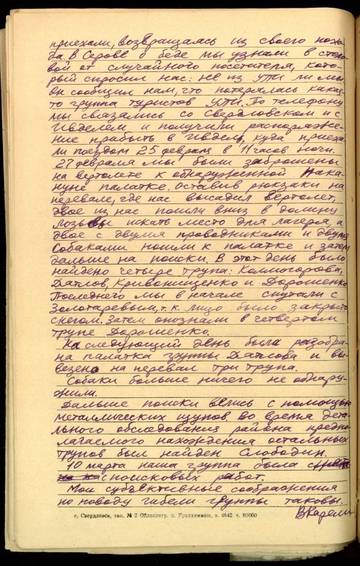 приехали, возвращаясь из своего похо-
да. В Серове о беде мы узнали в столо-
вой от случайного посетителя, кото-
рый спросил нас: не из УПИ ли мы и
он сообщил нам, что потерялась какая-
то группа туристов УПИ. По телефону
мы связались со Свердловском и с
Ивделем и получили распоряже-
ние прибыть в Ивдель, куда приеха-
ли поездом 25 февраля в 11 часов ночи.
27 февраля мы были заброшены
на вертолете к обнаруженной нака-
нуне палатке. Оставив рюкзаки на
перевале, где нас высадил вертолет,
двое из нас пошли вниз в долину
Лозьвы искать место для лагеря, а
двое с двумя проводниками и двумя
собаками пошли к палатке и затем
дальше на поиски. В этот день было
найдено четыре трупа: Колмогорова,
Дятлов, Кривонищенко и Дорошенко.
Последнего мы в начале спутали с
Золотаревым, т.к. лицо было закрыто
снегом. Затем опознали в четвертом
трупе Дорошенко.
На следующий день была разобра-
на палатка группы Дятлова и вы-
везено на перевал три трупа.
Собаки больше ничего не обнару-
жили.
Дальше поиски велись с помощью
металлических щупов. Во время дета-
льного обследования района предпо-
лагаемого нахождения остальных
трупов был найден Слободин.
10 марта наша группа была
с поисковых работ.
Мои субъективные соображения
по поводу гибели группы таковы.
ВКарелин
г. Свердловск, тип. № 2 Облполигр. п.